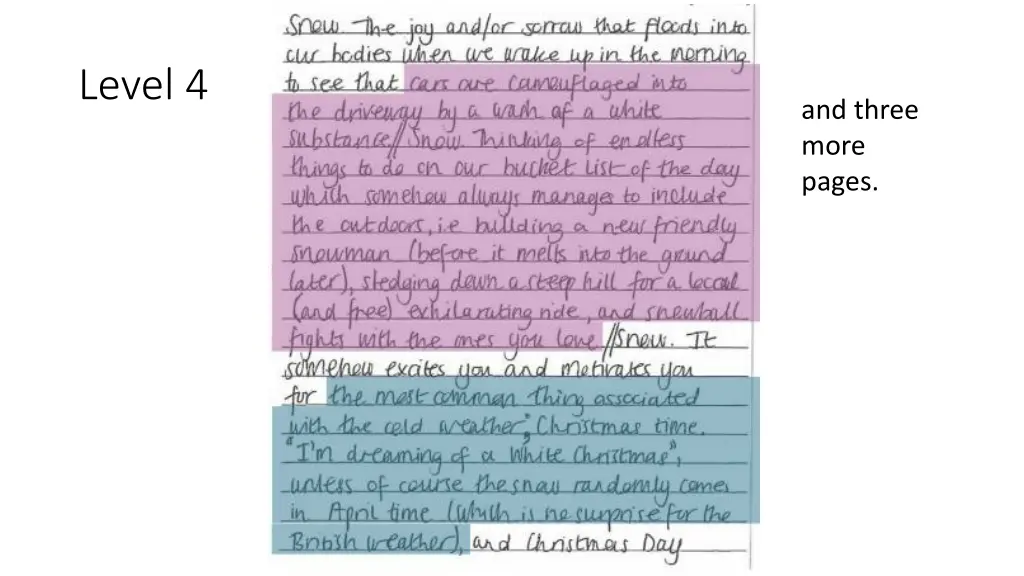 Level 4
Snow. The joy and/or sorrow that floods into
our bodies when we wake up in the morning
to see that cars are camouflaged into
the driveway by a wash of a white
substance//Snow. Thinking of endless
things to do on our bucket list of the day
which somehow always manages to include
the outdoors, i.e building a new friendly
snowman (before it melts into the ground
later), sledging down a steep hill for a local
(and free) exhilarating ride, and snowball
fights with the ones you love //Snow. It
somehow excites you and motivates you
for the most common thing associated
with the cold weather, Christmas time.
"I'm dreaming of a White Christmas",
unless of course the snow randomly comes
in April time (which is no surprise for the
British weather), and Christmas Day
and three
more
pages.